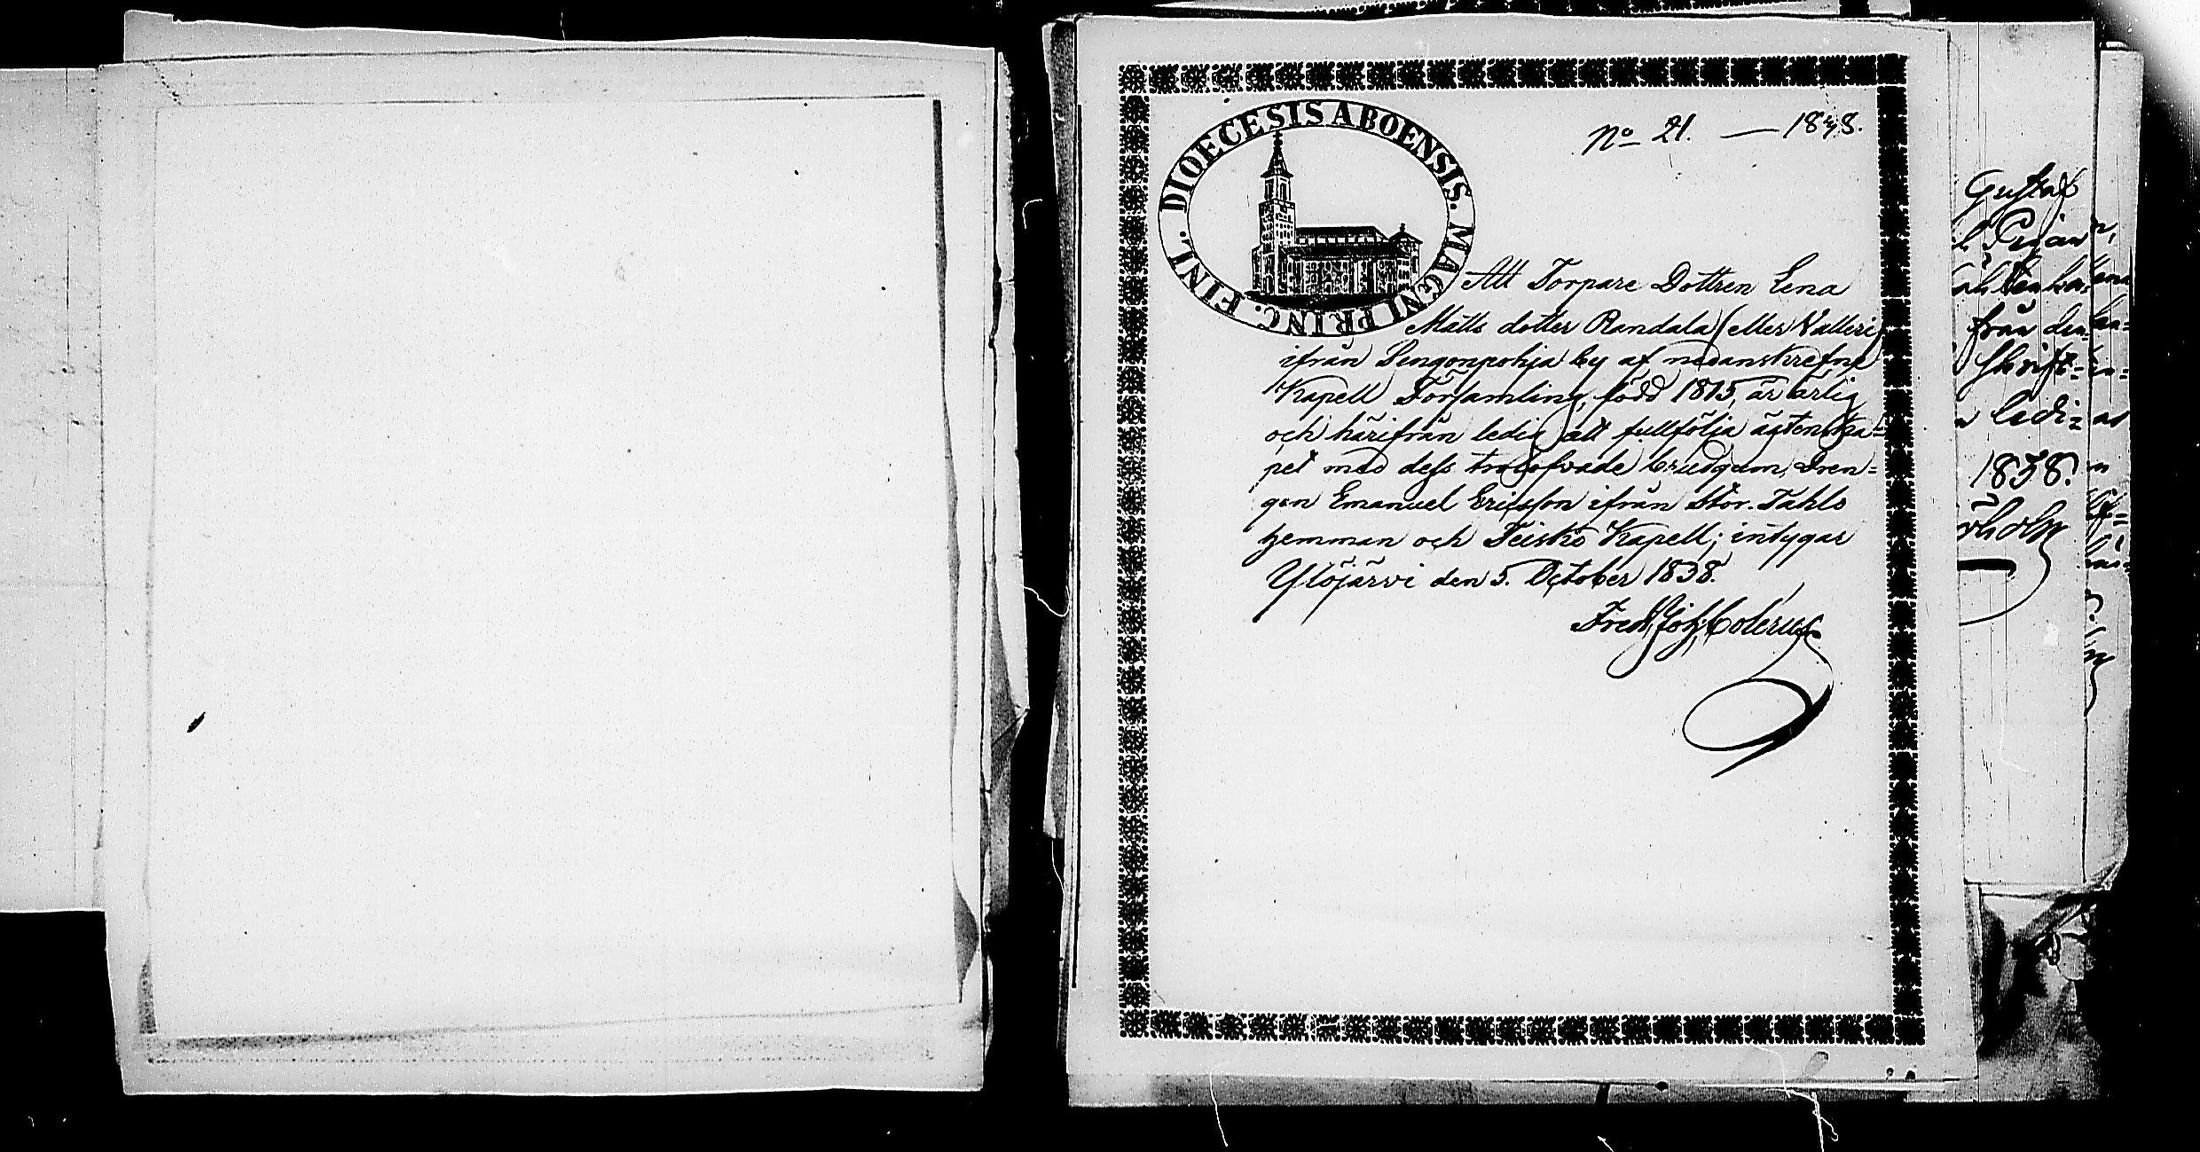 DIOECESIS ABOENSIS. MAGNI PRINC. FINL.
No 21. — 1838.
Att Torpare Dottren Lena
Matts dotter Randala (eller Valleri)
ifrån Lengonpohja by af nedanskrefne
Kapell Församling, född 1815, är ärlig
och härifrån ledig att fullfölja äktenska=
pet med dess trolofvade brudgum, Dren=
gen Emanuel Ericsson ifrån Stor-Tahlo
hemman och Teisko Kapell; intygar
Ylöjärvi den 5. October 1838.
Fredr. Joh. Colerus
Gustaf
från den
Skrift=
ledi=
1838.